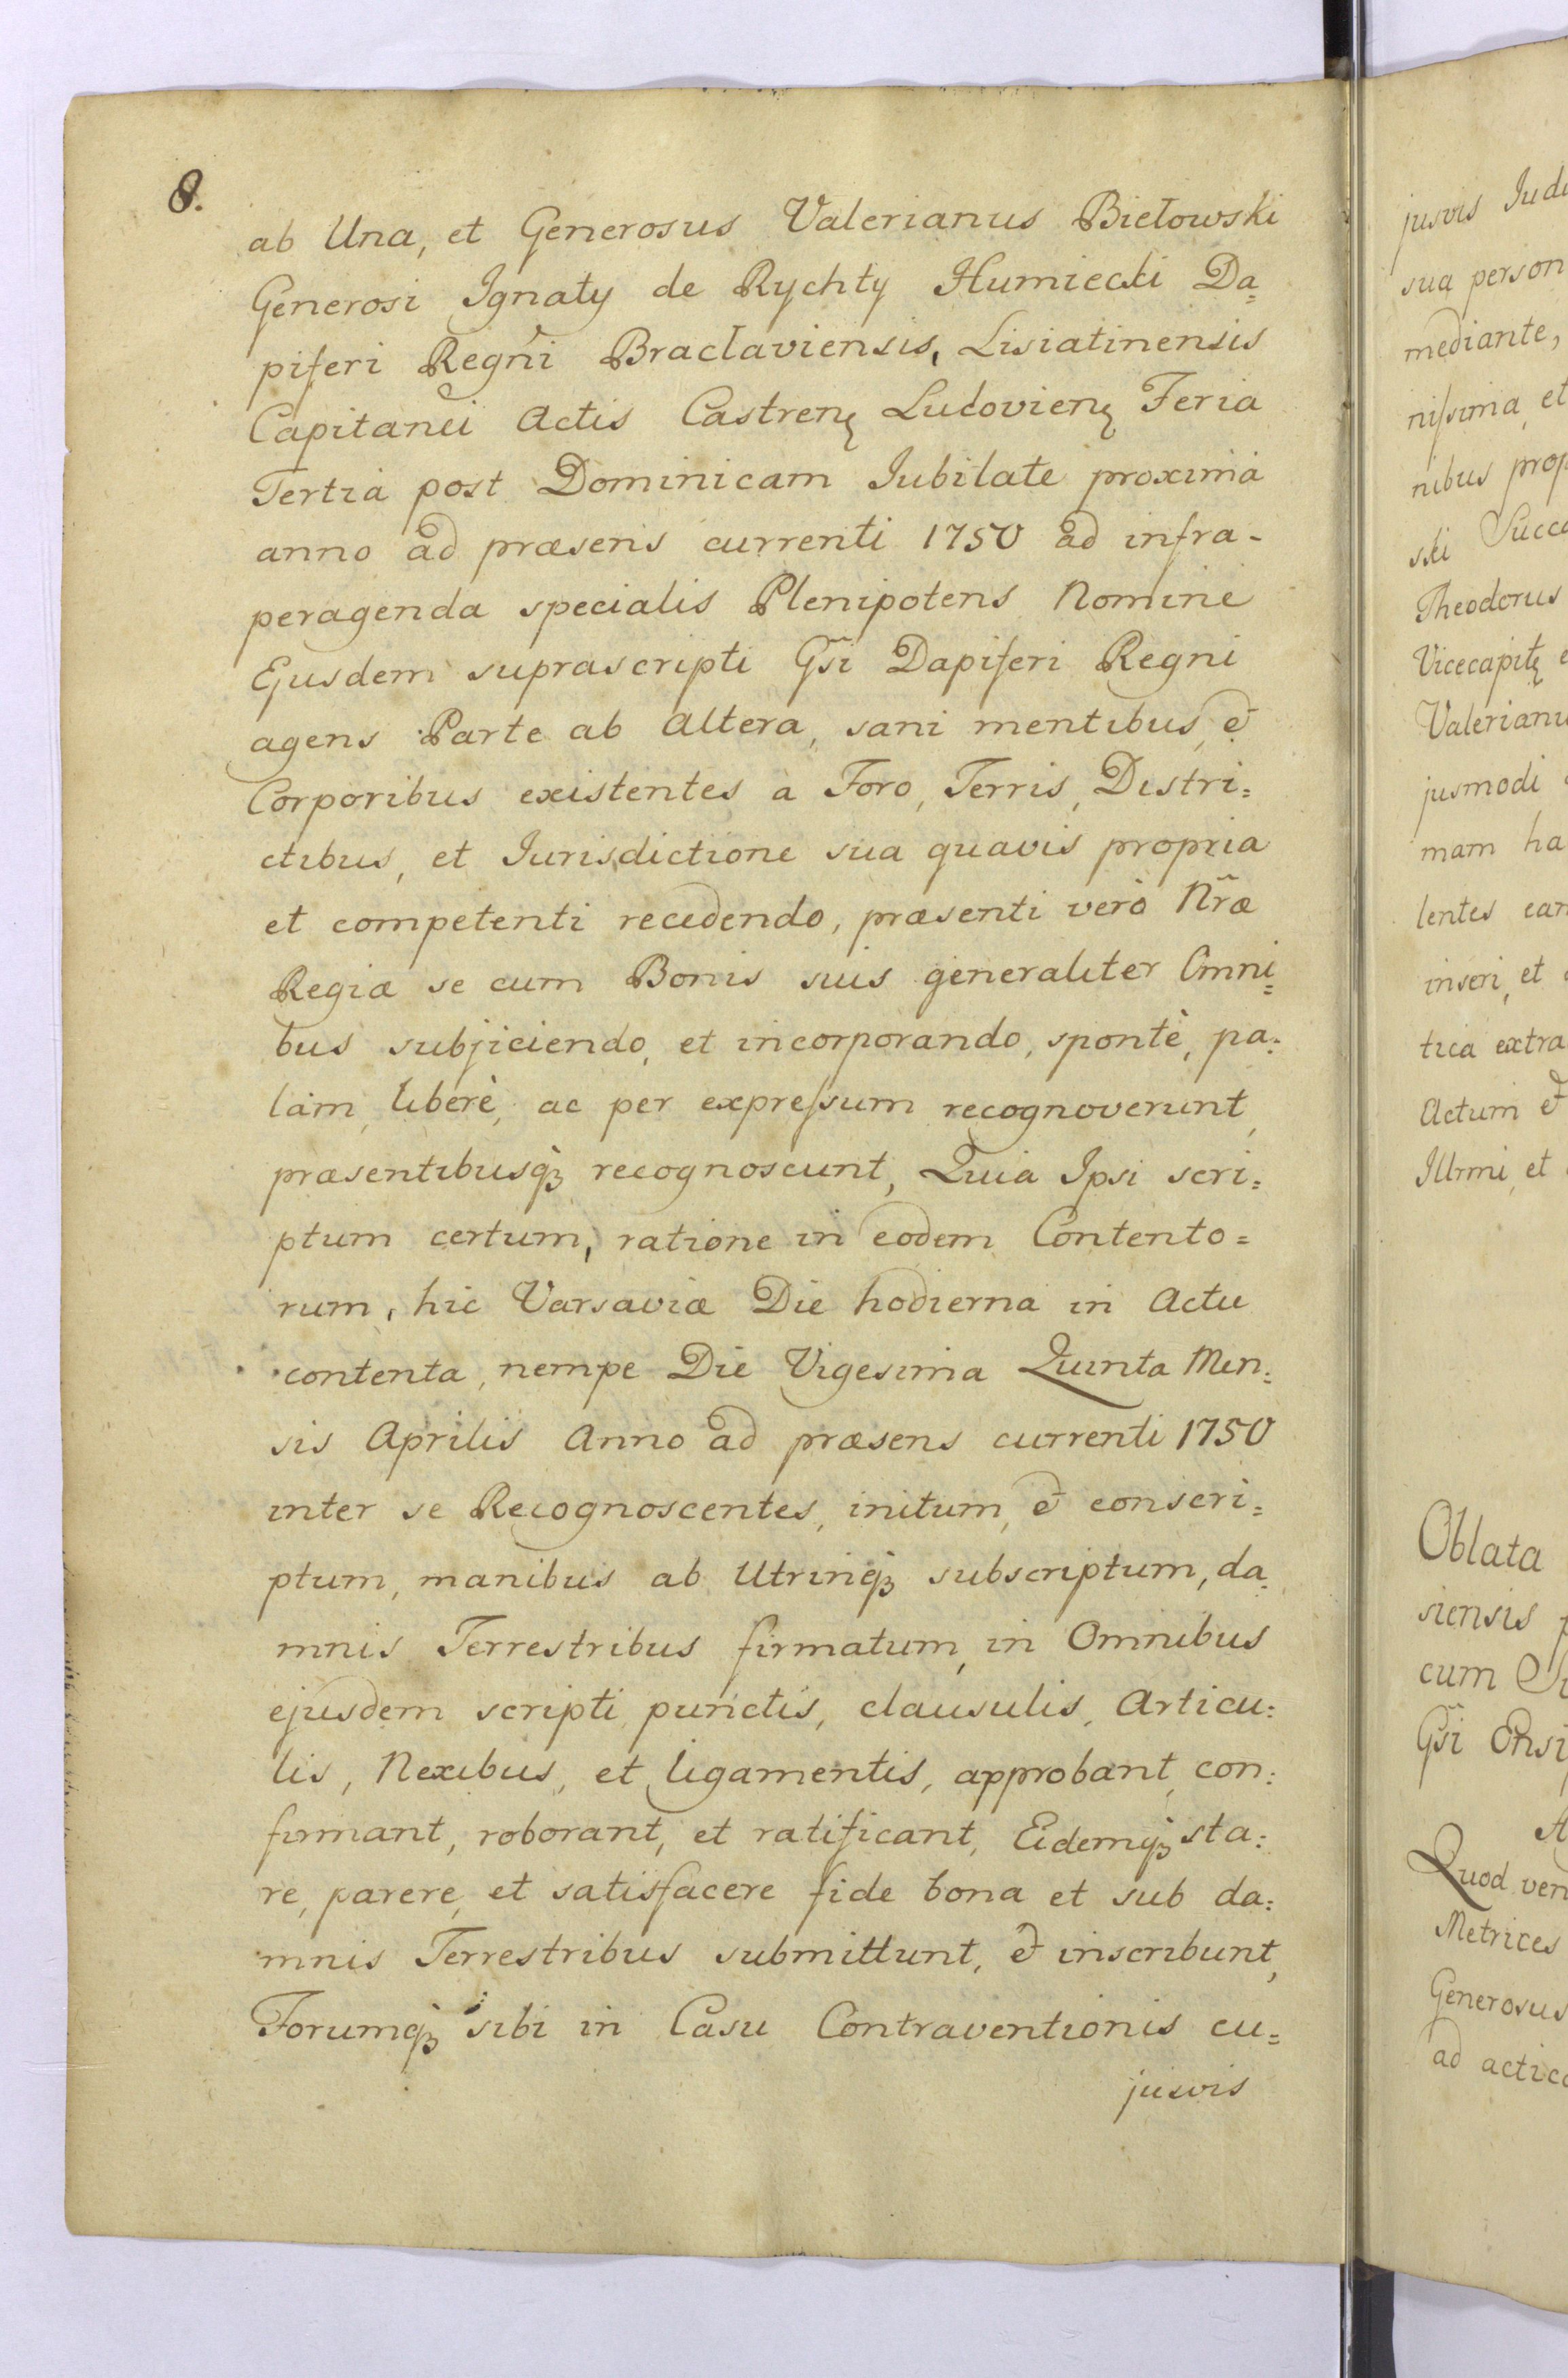 8.
ab Una, et Generosus Valerianus Bielowski
Generosi Ignatÿ de Rychty Humiecki Da=
piferi Regni Braclaviensis, Lisiatinensis
Capitanei Actis Castrenę Ludovienę Feria
Tertia post Dominicam Iubilate proxima
anno ad præsens currenti 1750 ad infra-
peragenda specialis Plenipotens Nomine
Ejusdem suprascripti Gsi Dapiferi Regni
agens Parte ab Altera, sani mentibus, et
Corporibus existentes à Foro, Terris, Distri=
ctibus, et Iurisdictione sua quavis propria
et competenti recedendo, præsenti verò Nræ
Regiæ se cum Bonis suis generaliter Omni=
bus subjiciendo, et incorporando, spontè, pa=
làm, liberè, ac per expressum recognoverunt,
præsentibusq3 recognoscunt, Quia Ipsi scri=
ptum certum, ratione in eodem Contento=
rum, hic Varsaviæ Die hodierna in Actu
contenta, nempe Die Vigesima Quinta Men=
sis Aprilis Anno ad præsens currenti 1750
inter se Recognoscentes, initum, et conscri=
ptum, manibus ab Utrinq3 subscriptum, da=
mnis Terrestribus firmatum, in Omnibus
ejusdem scripti punctis, clausulis, Articu=
lis, Nexibus, et ligamentis, approbant, con=
firmant, roborant, et ratificant, Eidemq3 sta=
re, parere, et satisfacere fide bona et sub da=
mnis Terrestribus submittunt, et inscribunt,
Forumq3 sibi in Casu Contraventionis cu=
jusvis
jusvis Iudi
sua person
mediante,
nissima, et
nibus prop
ski Succa
Theodorus
Vicecapitę e
Valerianu
jusmodi
mam ha
lentes ean
inseri, et
tica extra
Actum et
Illrmi, et
Oblata
siensis p
cum
Gsi Ensi
Quod ven
Metrices
Generosus
ad actica